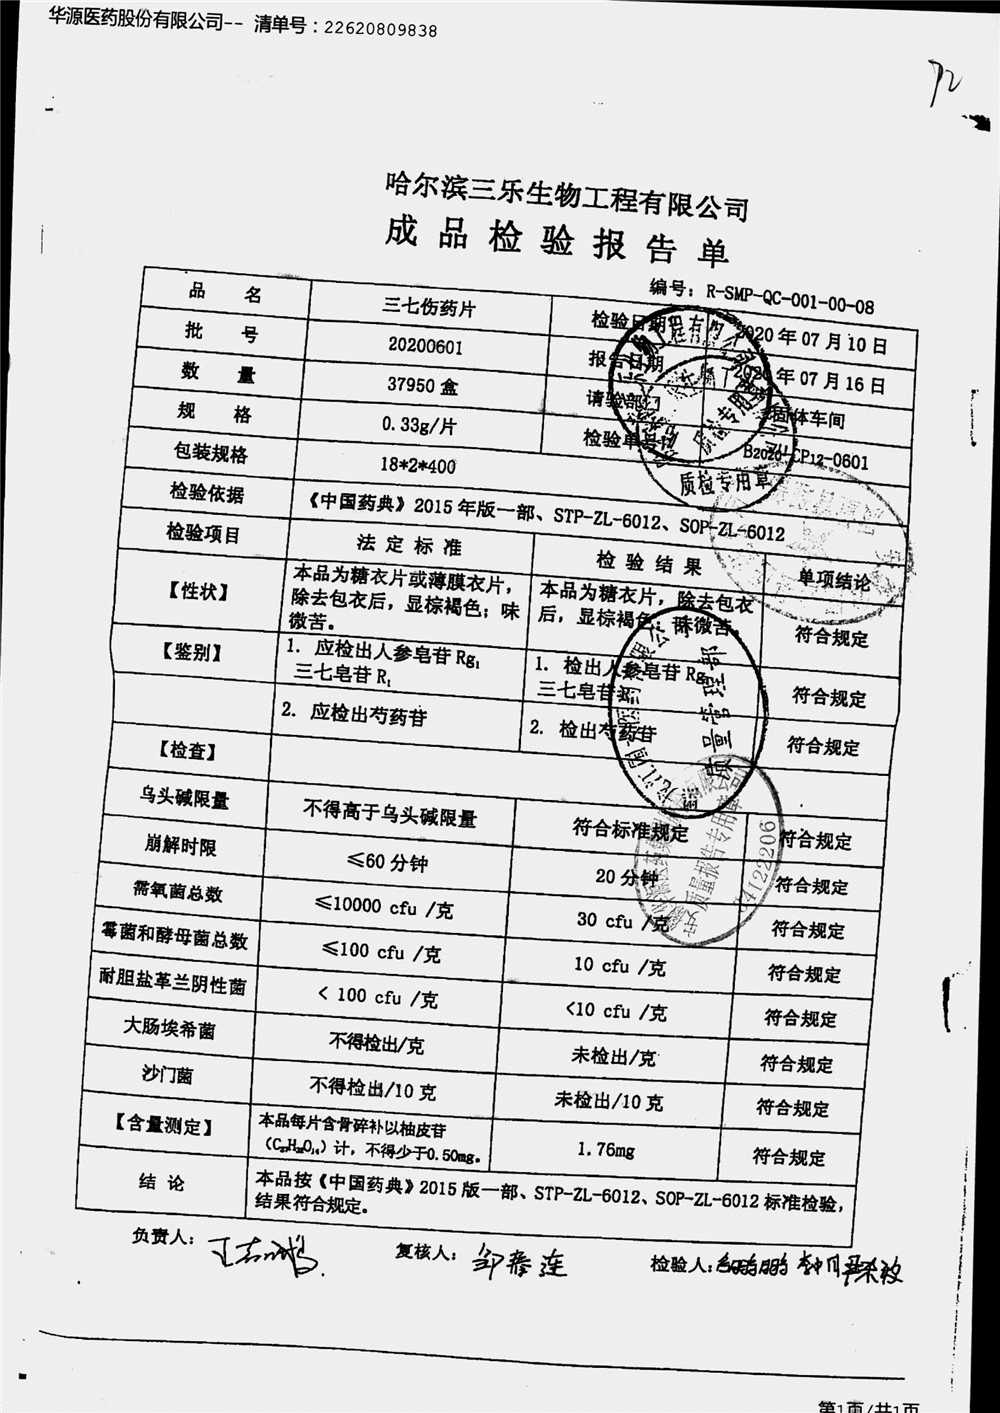 华源医药股份有限公司-- 清单号：22620809838
72
哈尔滨三乐生物工程有限公司
成品检验报告单
编号：R-SMP-QC-001-00-08
品 名 三七伤药片 检验日期 2020年07月10日
批 号 20200601 报告日期 2020年07月16日
数 量 37950盒 请验部门 固体车间
规 格 0.33g/片 检验单号 B2020-CP12-0601
包装规格 18*2*400
检验依据 《中国药典》2015年版一部、STP-ZL-6012、SOP-ZL-6012
检验项目 法定标准 检验结果 单项结论
【性状】 本品为糖衣片或薄膜衣片，除去包衣后，显棕褐色；味微苦。 本品为糖衣片，除去包衣后，显棕褐色；味微苦。 符合规定
【鉴别】 1. 应检出人参皂苷Rg₁ 三七皂苷R₁ 1. 检出人参皂苷Rg 三七皂苷R 符合规定
2. 应检出芍药苷 2. 检出芍药苷 符合规定
【检查】
乌头碱限量 不得高于乌头碱限量 符合标准规定 符合规定
崩解时限 ≤60分钟 20分钟 符合规定
需氧菌总数 ≤10000 cfu /克 30 cfu /克 符合规定
霉菌和酵母菌总数 ≤100 cfu /克 10 cfu /克 符合规定
耐胆盐革兰阴性菌 < 100 cfu /克 <10 cfu /克 符合规定
大肠埃希菌 不得检出/克 未检出/克 符合规定
沙门菌 不得检出/10克 未检出/10克 符合规定
【含量测定】 本品每片含骨碎补以柚皮苷（C₂₇H₃₂O₁₄）计，不得少于0.50mg。 1.76mg 符合规定
结 论 本品按《中国药典》2015版一部、STP-ZL-6012、SOP-ZL-6012标准检验，
结果符合规定。
负责人： 复核人： 检验人：
质检专用章
质检专用章
质量管理部
质量报告专用章
第1页/共1页